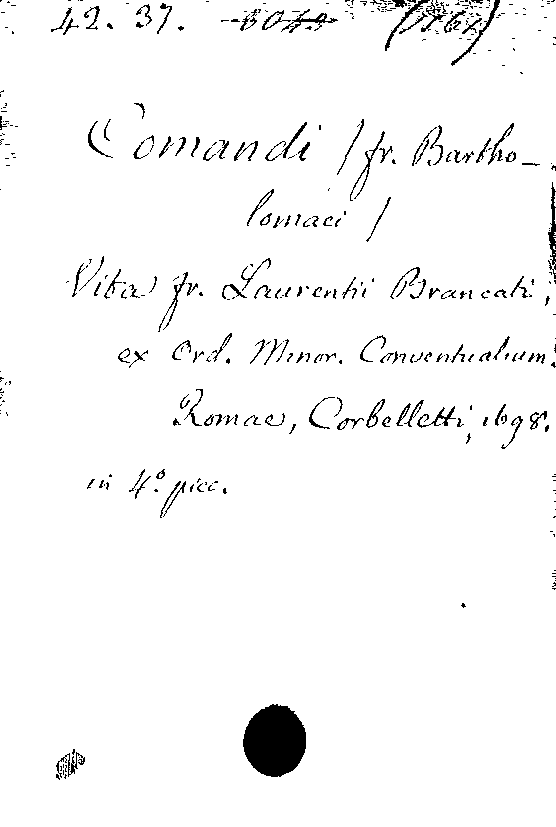 42. 37.
Comandi / fr. Bartho-
lomaei /
Vita fr. Laurentii Brancati,
ex Ord. Minor. Conventualium.
Romae, Corbelletti, 1698.
in 4.° picc.